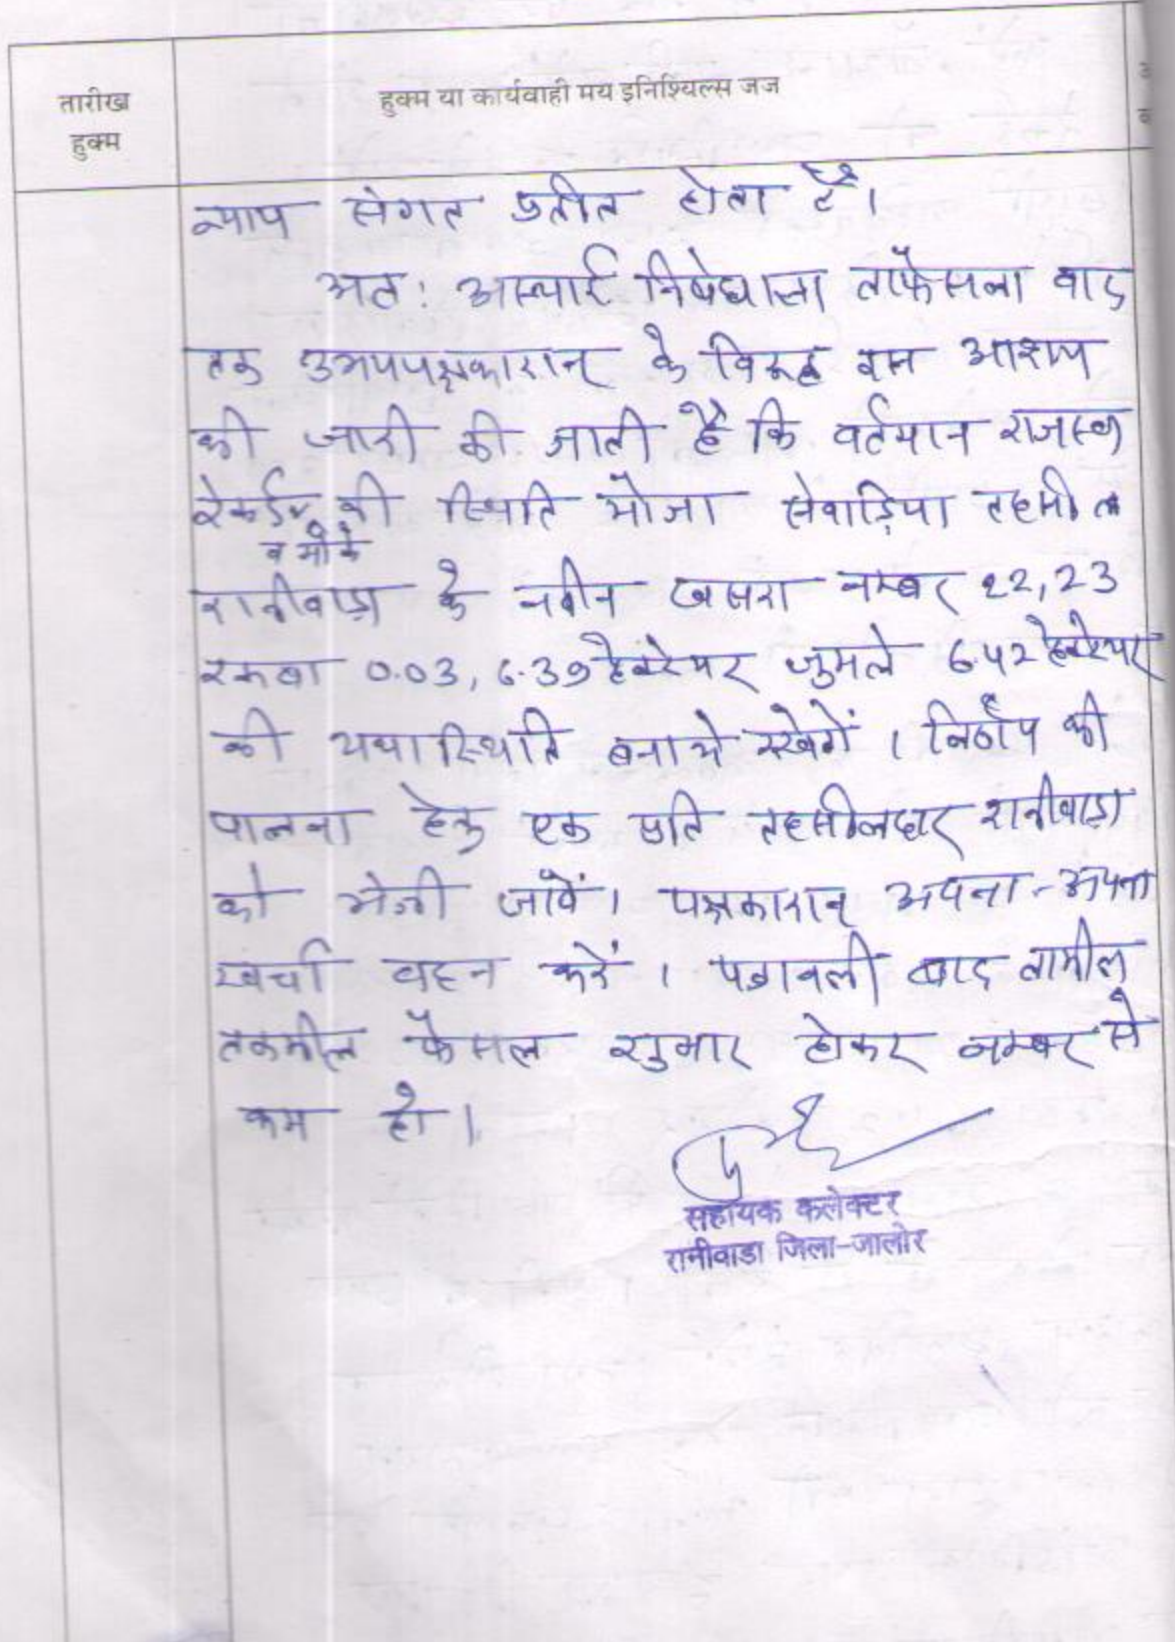 तारीख
हुक्म
हुक्म या कार्यवाही मय इनिश्यिल्स जज
न्याय संगत प्रतीत होता है।
अतः अस्थाई निषेधाज्ञा ताफैसला वाद
तक उभयपक्षकारान् के विरूद्ध इस आशय
की जारी की जाती है कि वर्तमान राजस्व
रेकर्ड की स्थिति मौजा सेवाड़िया तहसील
व मौके
रानीवाड़ा के नवीन खसरा नम्बर 22,23
रकबा 0.03, 6.39 हैक्टेयर जुमले 6.42 हैक्टेयर
की यथास्थिति बनाये रखेगें । निर्णय की
पालना हेतु एक प्रति तहसीलदार रानीवाड़ा
को भेजी जावें। पक्षकारान् अपना-अपना
खर्चा वहन करें । पत्रावली बाद तामील
तकमील फैसल शुमार होकर नम्बर से
कम हो।
सहायक कलेक्टर
रानीवाडा जिला-जालोर